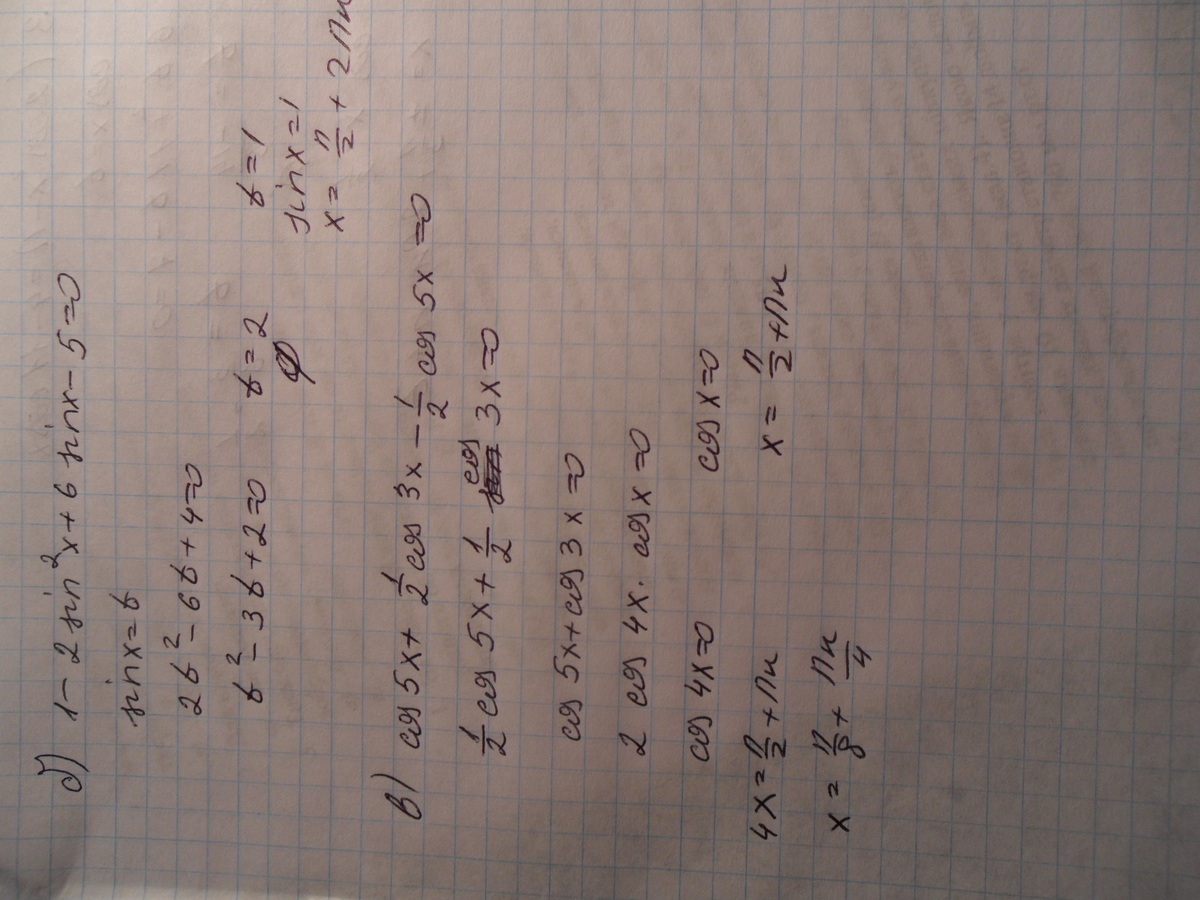 б) 1 - 2 sin²x + 6 sinx - 5 = 0
sinx = t
2t² - 6t + 4 = 0
t² - 3t + 2 = 0 t = 2 t = 1
∅ sinx = 1
x = п/2 + 2пк
в) cos 5x + 1/2 cos 3x - 1/2 cos 5x = 0
1/2 cos 5x + 1/2 cos 3x = 0
cos 5x + cos 3x = 0
2 cos 4x · cos x = 0
cos 4x = 0 cos x = 0
4x = п/2 + пк x = п/2 + пк
x = п/8 + пк/4